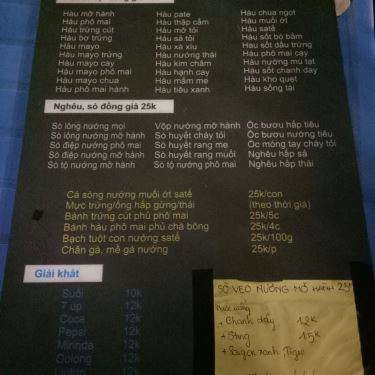 Hàu mỡ hành Hàu pate Hàu chua ngọt
Hàu phô mai Hàu thập cẩm Hàu muối ớt
Hàu trứng cút Hàu mỡ tỏi Hàu satế
Hàu bơ trứng Hàu sả tỏi Hàu sốt bò bằm
Hàu mayo Hàu xá xíu Hàu sốt dầu trứng
Hàu mayo trứng Hàu nướng thái Hàu phô mai cay
Hàu mayo cay Hàu kim châm Hàu nướng mù tạt
Hàu mayo phô mai Hàu hạnh cay Hàu sốt chanh dây
Hàu mayo chua Hàu mắm me Hàu kho quẹt
Hàu phô mai hành Hàu tiêu xanh Hàu sống tái
Nghêu, sò đồng giá 25k
Sò lông nướng mọi Vộp nướng mỡ hành Ốc bươu hấp tiêu
Sò lông nướng mỡ hành Sò huyết cháy tỏi Ốc bươu nướng tiêu
Sò điệp nướng phô mai Sò huyết rang me Ốc móng tay cháy tỏi
Sò điệp nướng mỡ hành Sò huyết rang muối Nghêu hấp sả
Sò tộ nướng mỡ hành Sò tộ nướng phô mai Nghêu hấp thái
Cá sòng nướng muối ớt satế 25k/con
Mực trứng/ống hấp gừng/thái (theo thời giá)
Bánh trứng cút phủ phô mai 25k/5c
Bánh hàu phô mai phủ chà bông 25k/4c
Bạch tuột con nướng satế 25k/100g
Chân gà, mề gà nướng 25k/p
Giải khát
Suối 10k
7 up 12k
Coca 12k
Pepsi 12k
Mirinda 12k
Oolong 12k
SÒ VẸO NƯỚNG MỠ HÀNH 25k
Nước uống
+ Chanh dây 12k
+ Sting 15k
+ Saigon xanh, Tiger